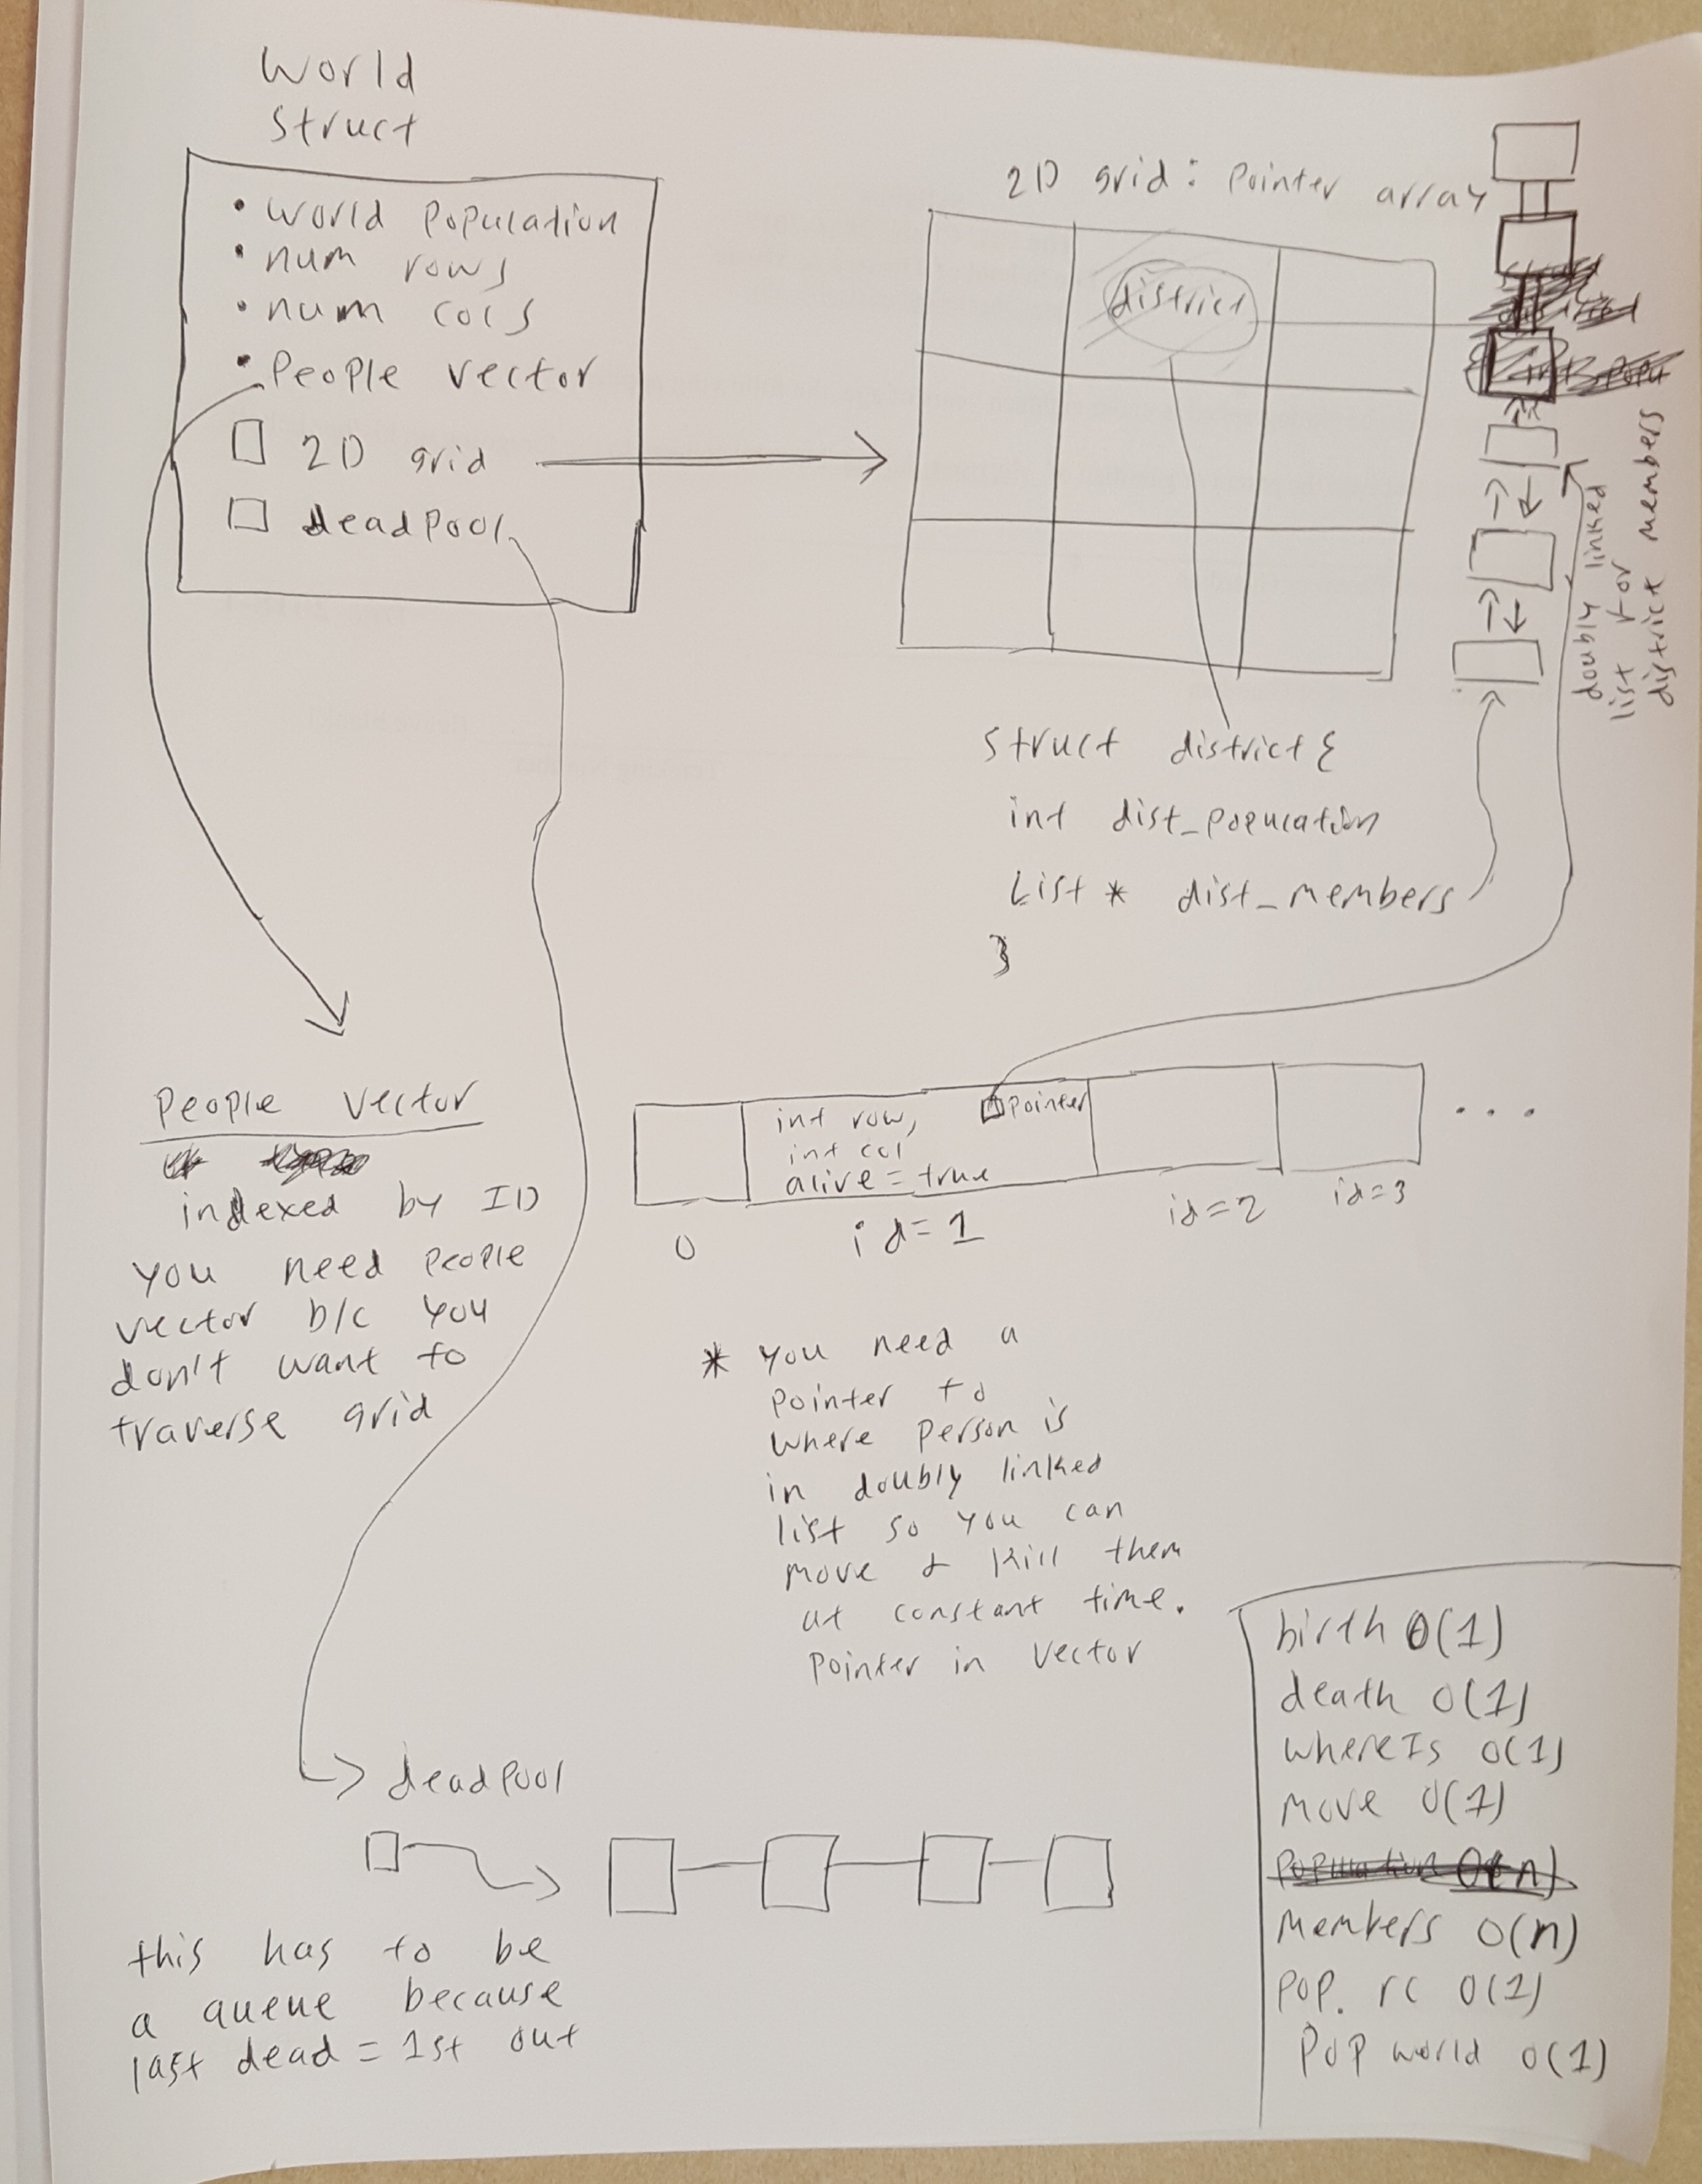 World
Struct
• World Population
• num rows
• num cols
• People vector
2D grid
deadpool
2D grid: Pointer array
district
doubly linked
list for
district members
struct district {
int dist_population
List * dist_members
}
People Vector
indexed by ID
You need people
vector b/c you
don't want to
traverse grid
int row,
int col
alive = true
Pointer
...
0
id=1
id=2
id=3
* You need a
pointer to
where person is
in doubly linked
list so you can
move & kill them
at constant time.
Pointer in Vector
deadpool
this has to be
a queue because
last dead = 1st out
birth O(1)
death O(1)
whereIs O(1)
Move O(1)
Population O(n)
Members O(n)
Pop. rc O(1)
Pop world O(1)